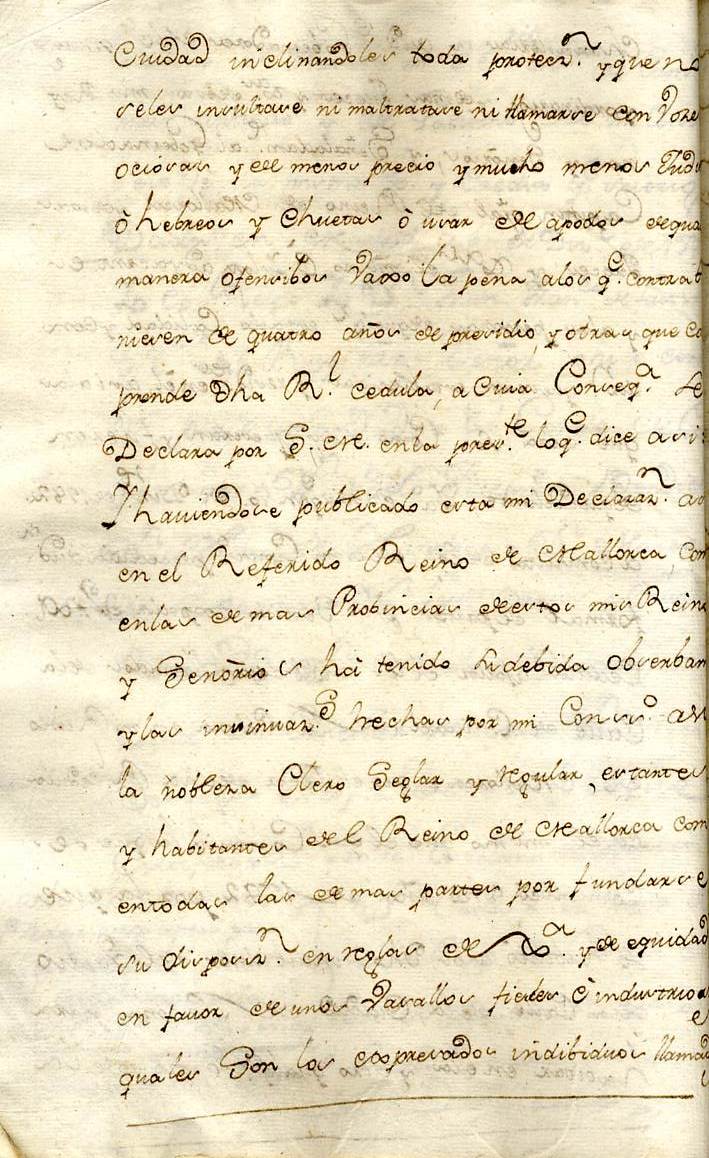 Ciudad inclinandoles toda protecn. y que no
seles insultase ni maltratase ni llamarse con Voze
ociosas y de menos precio y mucho menos Judi
ò hebreos y Chuetas ò usar de apodos dequa
manera ofensibos Vaxo la pena alos q.e contrab
nieren de quatro años de presidio, y otras que co
prende Dha R.l cedula, a Cuia Conseq.a se
Declara por S. M. enla pres.te loq.e dice asi
Y haviendose publicado esta mi Declaraz.n as
en el Referido Reino de Mallorca, com
enlas demas Probincias de estos mis Rein
y Señorios hà tenido su debida obserban
y las insinuaz.s hechas por mi Cons.o a
la nobleza Clero Seglar y regular, estantes
y habitantes del Reino de Mallorca com
entodas las demas partes por fundarse
su disposiz.n en reglas de y de equidad
en favor de unos Vasallos fieles è industrio
quales Son los expresados indibiduos llamad